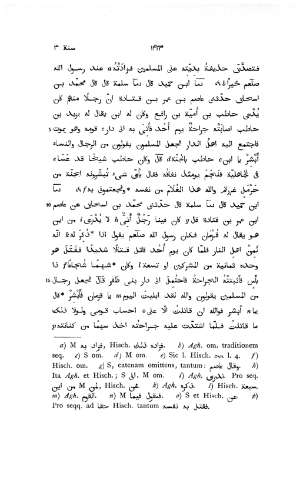 سنة ٣ ١٤٢٣
فتصدّق حذيفة بديته على المسلمين فزادته عند رسول الله
صلعم خيرًا a، نا ابن حميد قال نا سلمة قال قال محمد بن
اسحاق حدّثنى عاصم بن عمر بن قتادة انّ رجلًا منهم كان
يُدْعَى حاطب بن أميّة بن رافع وكان له ابن يقال له يزيد بن
حاطب اصابته جراحة يوم أحد فأتى به الى دار قومه وهو يموت
فاجتمع اليه اهل الدار فجعل المسلمون يقولون من الرجال والنساء
أبشر يا ابن حاطب بالجنّة قال وكان حاطب شيخًا قد عسا
فى الجاهليّة فنجم يومئذ نفاقه فقال بأىّ شىء تبشّرونه أجنّة من
حرمل غررتم والله هذا الغلام من نفسه
ابن حميد قال نا سلمة قال حدّثنى محمد بن اسحاق عن عاصم ١٠
ابن عمر بن قتادة قال كان فينا رجل أتىّ لا يُدْرَى من اين
هو يقال له قزمان فكان رسول الله صلعم يقول اذا ذُكِر له انّه
لمن اهل النار فلمّا كان يوم أحد قاتل قتالًا شديدًا فقتل هو
وحده ثمانية من المشركين او تسعة وكان شهمًا شجاعًا ذا
بأس فأثبتته الجراحة فاحتمل الى دار بنى ظفر قال فجعل رجال ١٥
من المسلمين يقولون والله لقد ابليت اليوم يا قزمان فأبشر قال
بم أبشر فوالله ان قاتلت الّا على احساب قومى ولولا ذلك
ما قاتلت فلمّا اشتدّت عليه جراحته اخذ سهمًا من كنانته
a) M فزاد به, Hisch. فزاده ذلك. b) Agh. om. traditionem
seq. c) S om. d) M om. e) Sic l. Hisch. l. 4. f)
Hisch. om. g) S, catenam emittens, tantum: وقال عاصم. h)
Ita Agh. et Hisch.; S, M om. i) Agh. Pro seq.
M, Hisch. k) Agh. l) Hisch. سبعة.
m) Agh. n) M o) S et Hisch. عن.
Pro seqq. ad Hisch. tantum فقتل به نفسه.